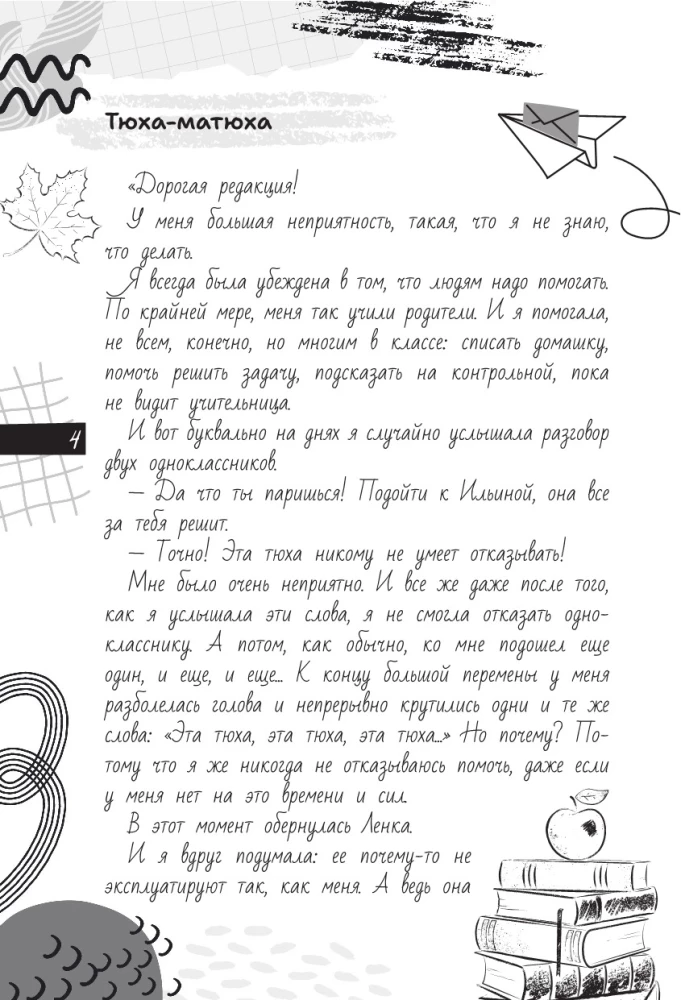 Тюха-матюха
«Дорогая редакция!
У меня большая неприятность, такая, что я не знаю,
что делать.
Я всегда была убеждена в том, что людям надо помогать.
По крайней мере, меня так учили родители. И я помогала,
не всем, конечно, но многим в классе: списать домашку,
помочь решить задачу, подсказать на контрольной, пока
не видит учительница.
И вот буквально на днях я случайно услышала разговор
двух одноклассников.
— Да что ты паришься! Подойти к Ильиной, она все
за тебя решит.
— Точно! Эта тюха никому не умеет отказывать!
Мне было очень неприятно. И все же даже после того,
как я услышала эти слова, я не смогла отказать одно-
класснику. А потом, как обычно, ко мне подошел еще
один, и еще, и еще... К концу большой перемены у меня
разболелась голова и непрерывно крутились одни и те же
слова: «Эта тюха, эта тюха, эта тюха...» Но почему? По-
тому что я же никогда не отказываюсь помочь, даже если
у меня нет на это времени и сил.
В этот момент обернулась Ленка.
И я вдруг подумала: ее почему-то не
эксплуатируют так, как меня. А ведь она
4